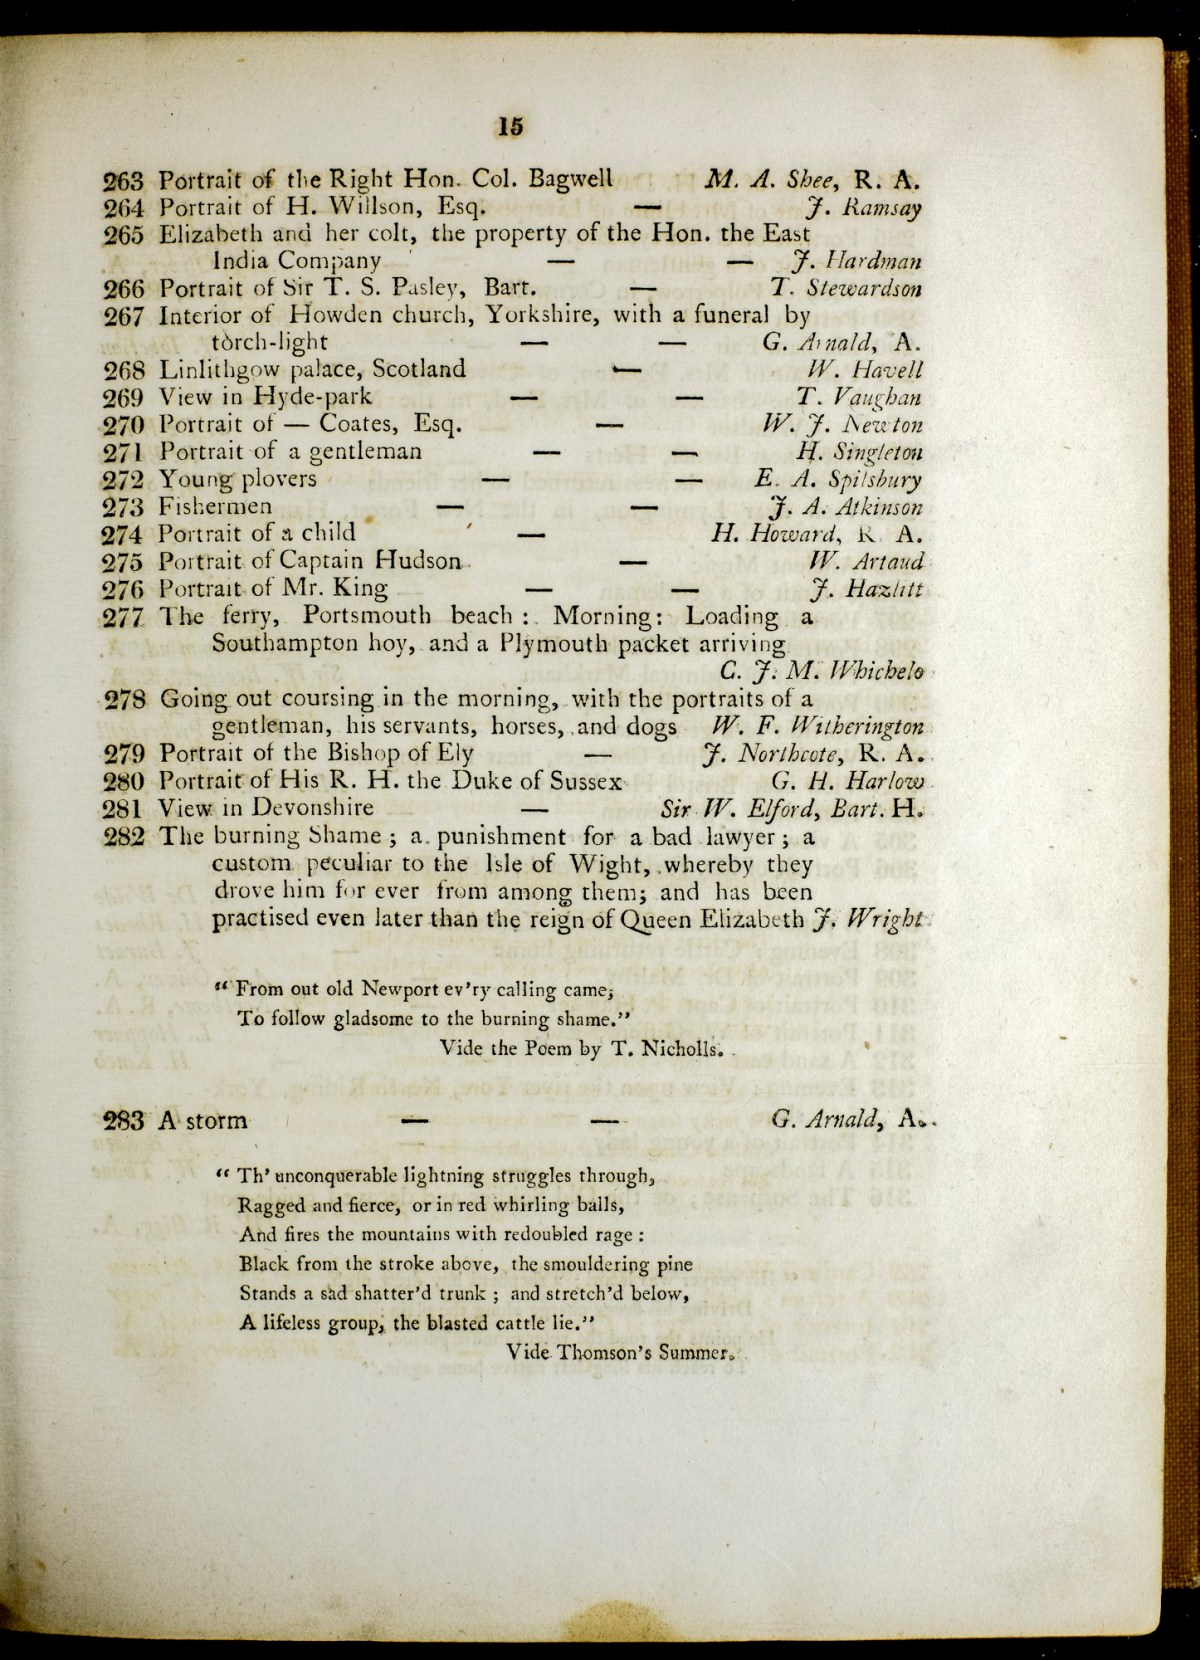 15
263 Portrait of the Right Hon. Col. Bagwell M. A. Shee, R. A.
264 Portrait of H. Willson, Esq. — J. Ramsay
265 Elizabeth and her colt, the property of the Hon. the East
India Company — — J. Hardman
266 Portrait of Sir T. S. Pasley, Bart. — T. Stewardson
267 Interior of Howden church, Yorkshire, with a funeral by
torch-light — — G. Arnald, A.
268 Linlithgow palace, Scotland — W. Havell
269 View in Hyde-park — — T. Vaughan
270 Portrait of — Coates, Esq. — W. J. Newton
271 Portrait of a gentleman — — H. Singleton
272 Young plovers — — E. A. Spilsbury
273 Fishermen — — J. A. Atkinson
274 Portrait of a child — H. Howard, R. A.
275 Portrait of Captain Hudson — W. Artaud
276 Portrait of Mr. King — — J. Hazlitt
277 The ferry, Portsmouth beach : Morning: Loading a
Southampton hoy, and a Plymouth packet arriving
C. J. M. Whichelo
278 Going out coursing in the morning, with the portraits of a
gentleman, his servants, horses, and dogs W. F. Witherington
279 Portrait of the Bishop of Ely — J. Northcote, R. A.
280 Portrait of His R. H. the Duke of Sussex G. H. Harlow
281 View in Devonshire — Sir W. Elford, Bart. H.
282 The burning Shame ; a punishment for a bad lawyer ; a
custom peculiar to the Isle of Wight, whereby they
drove him for ever from among them; and has been
practised even later than the reign of Queen Elizabeth J. Wright
“ From out old Newport ev'ry calling came;
To follow gladsome to the burning shame.”
Vide the Poem by T. Nicholls.
283 A storm — — G. Arnald, A.
“ Th' unconquerable lightning struggles through,
Ragged and fierce, or in red whirling balls,
And fires the mountains with redoubled rage :
Black from the stroke above, the smouldering pine
Stands a sad shatter'd trunk ; and stretch'd below,
A lifeless group, the blasted cattle lie.”
Vide Thomson's Summer.